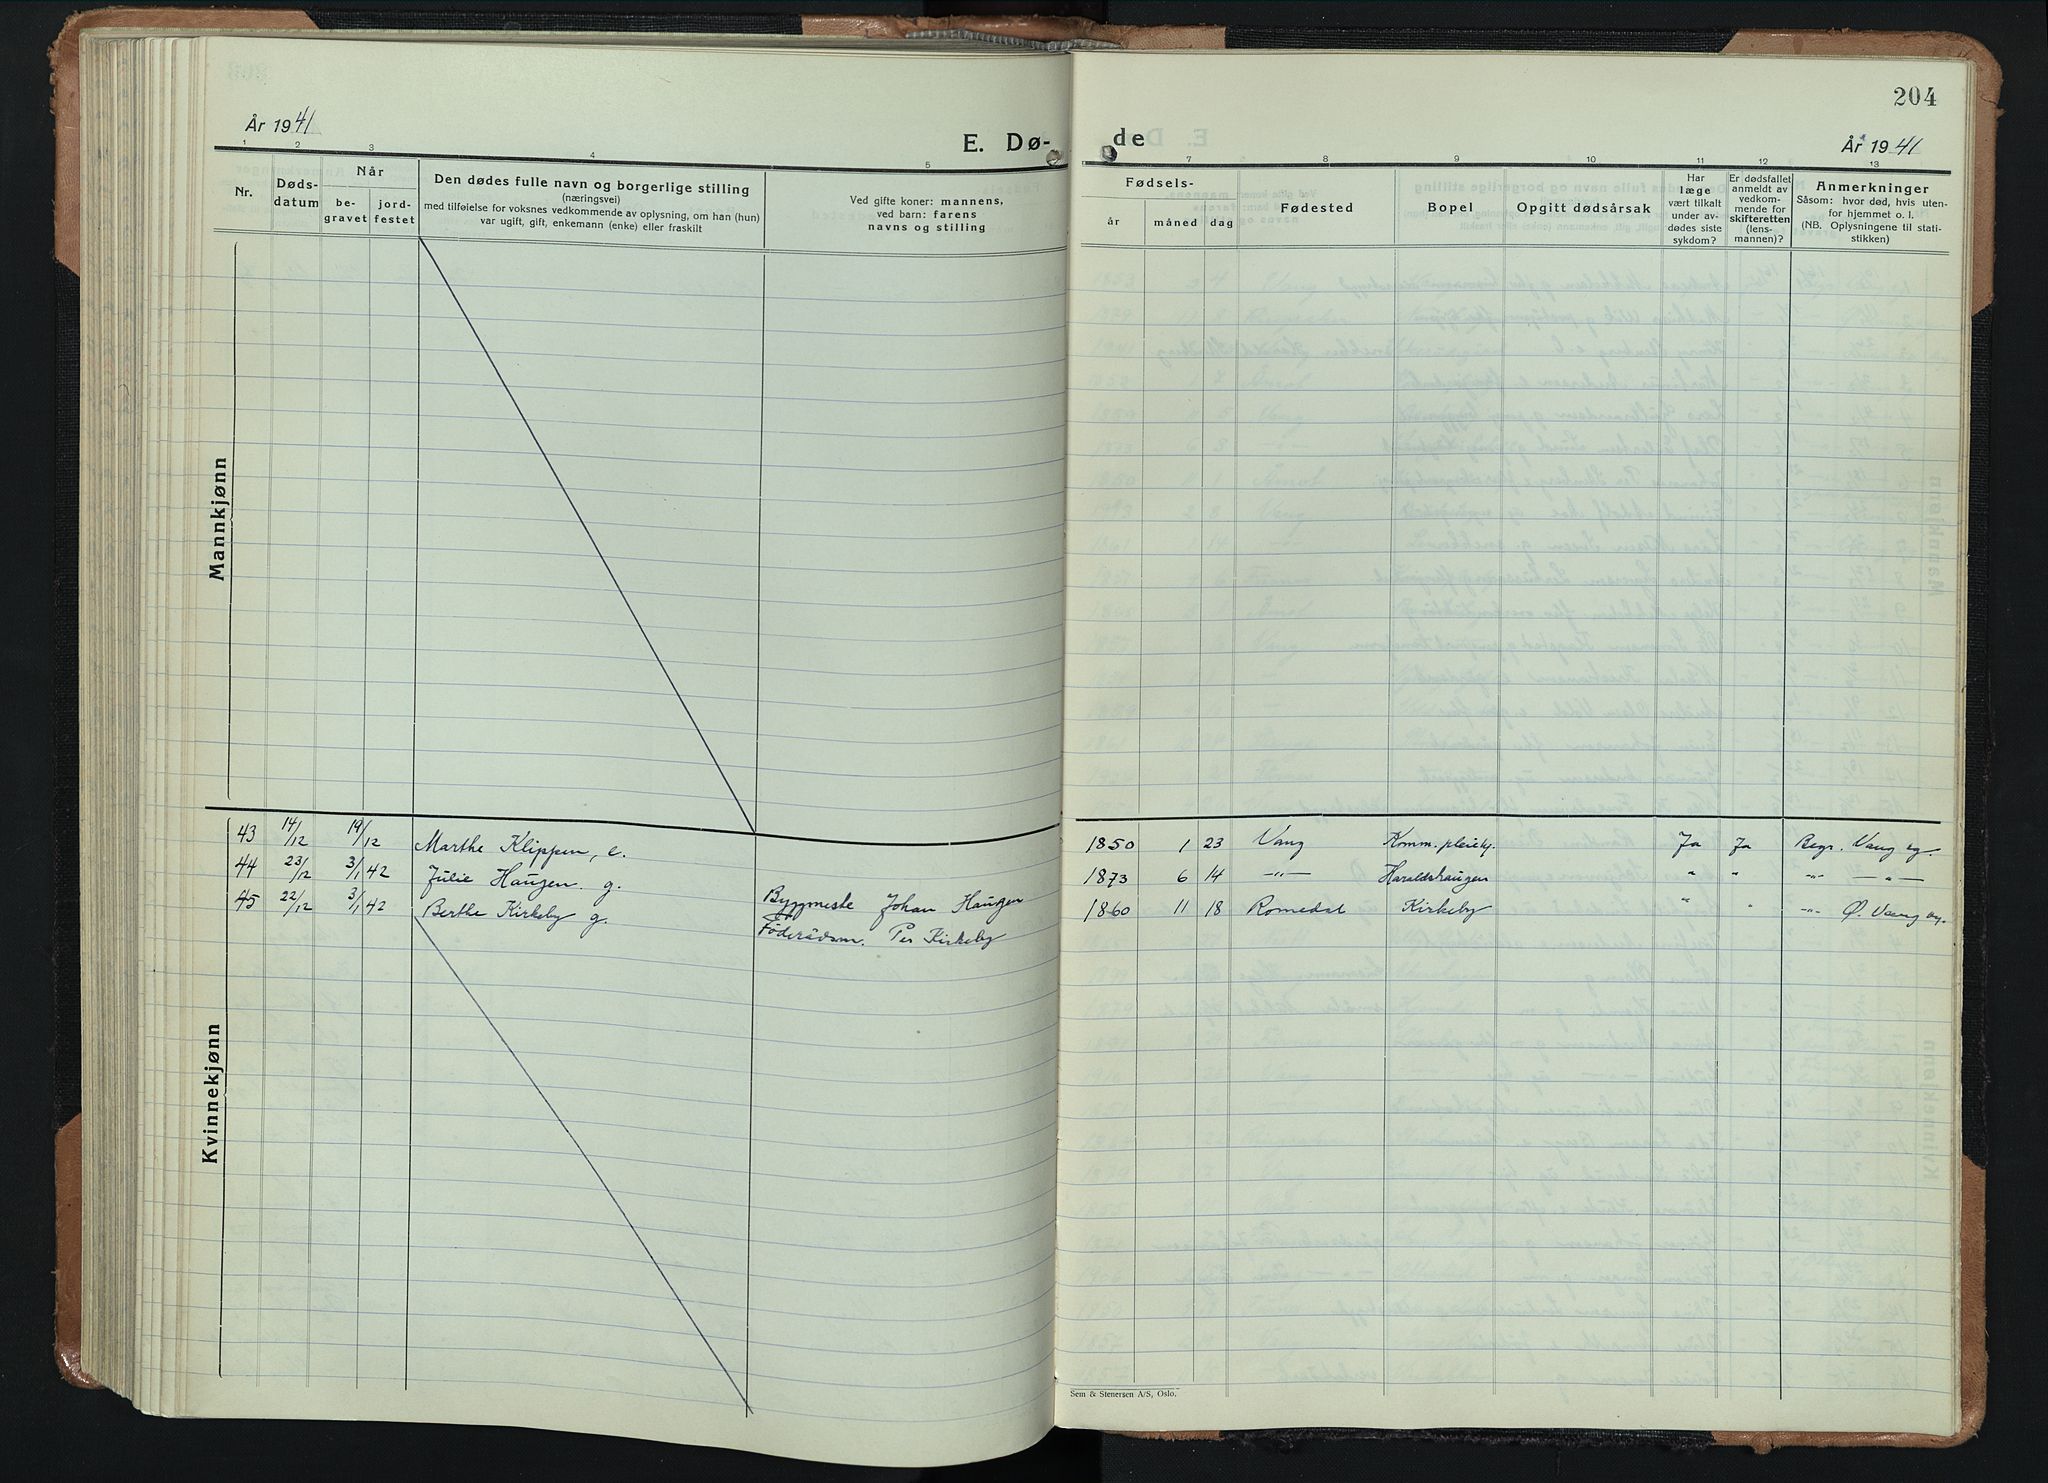 204
År 1941
E. Dø-
de
År 1941
1 2 3 4 5 7 8 9 10 11 12 13
Nr.
Døds-
datum
Når
be-
gravet
jord-
festet
Den dødes fulle navn og borgerlige stilling
(næringsvei)
med tilføielse for voksnes vedkommende av oplysning, om han (hun)
var ugift, gift, enkemann (enke) eller fraskilt
Ved gifte koner: mannens,
ved barn: farens
navns og stilling
Fødsels-
år måned dag
Fødested
Bopel
Opgitt dødsårsak
Har
læge
vært tilkalt
under av-
dødes siste
sykdom?
Er dødsfallet
anmeldt av
vedkom-
mende for
skifteretten
(lens-
mannen)?
Anmerkninger
Såsom: hvor død, hvis uten-
for hjemmet o. l.
(NB. Oplysningene til stati-
stikken)
Mannkjønn
Kvinnekjønn
43 14/12 19/12 Marthe Klippen, e. 1850 1 23 Vang Komm. pleiehj. Ja Ja Begr. Vang kg.
44 23/12 3/1 42 Julie Haugen. g. Byggmeste Johan Haugen 1873 6 14 -"- Haraldshaugen " " -"- -"-
45 22/12 3/1 42 Berthe Kirkeby g. Föderådsm. Per Kirkeby 1860 11 18 Romedal Kirkeby " " -"- Ø. Vang kg.
Sem & Stenersen A/S, Oslo.